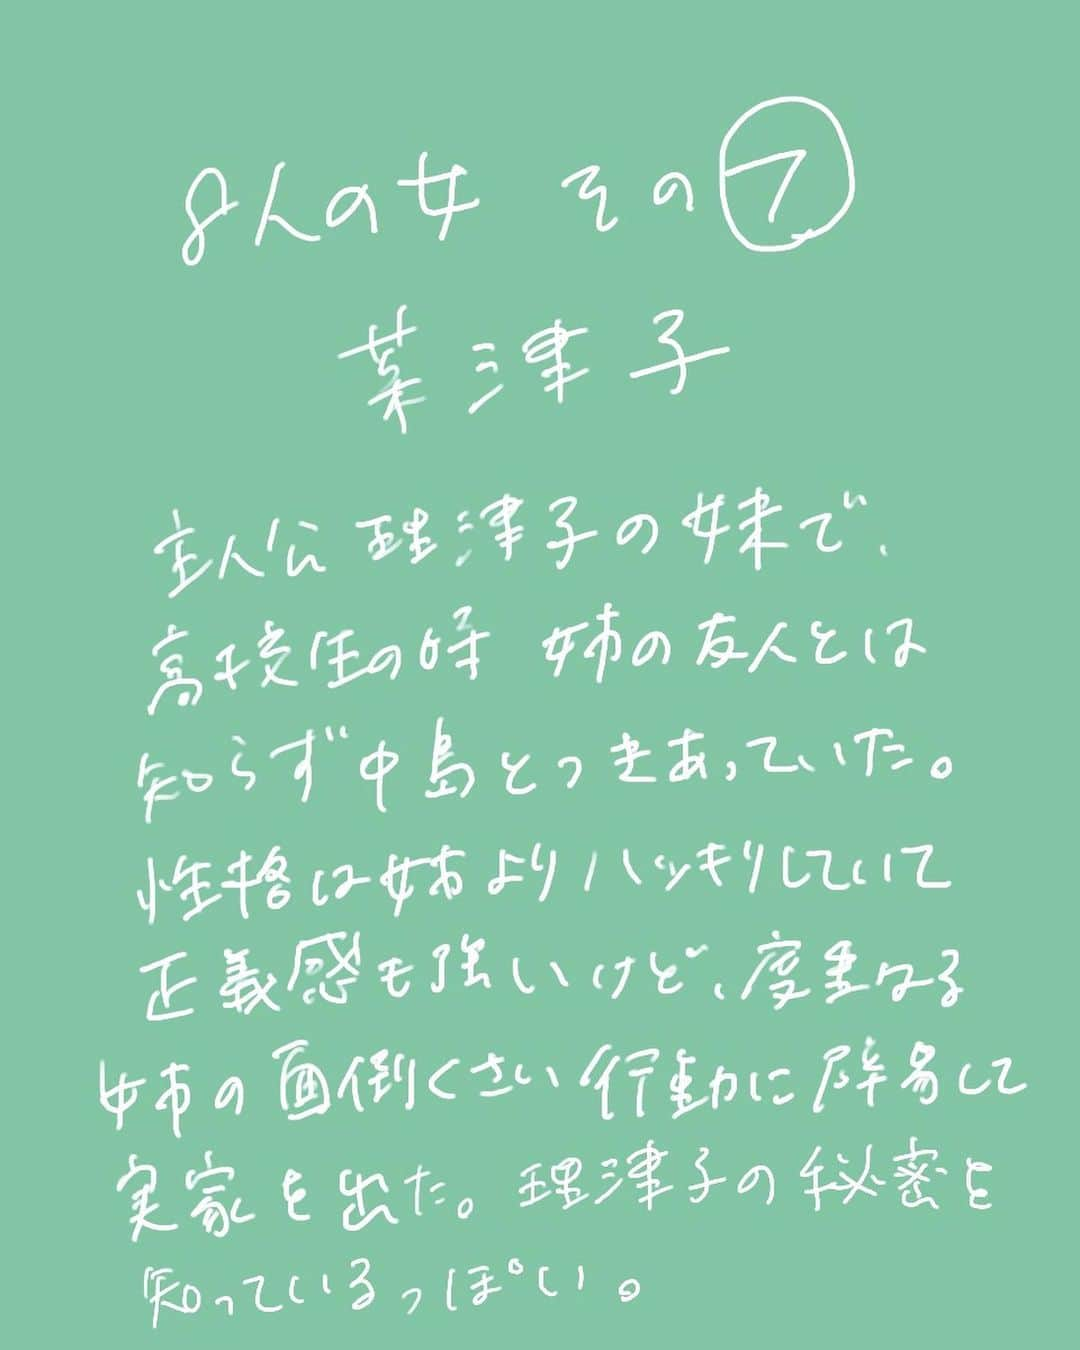 8人の女 その⑦
菜津子
主人公 理津子の妹で、
高校生の時 姉の友人とは
知らず中島とつきあっていた。
性格は姉よりハッキリしていて
正義感も強いけど、度重なる
姉の面倒くさい行動に辟易して
実家を出た。理津子の秘密を
知っているっぽい。